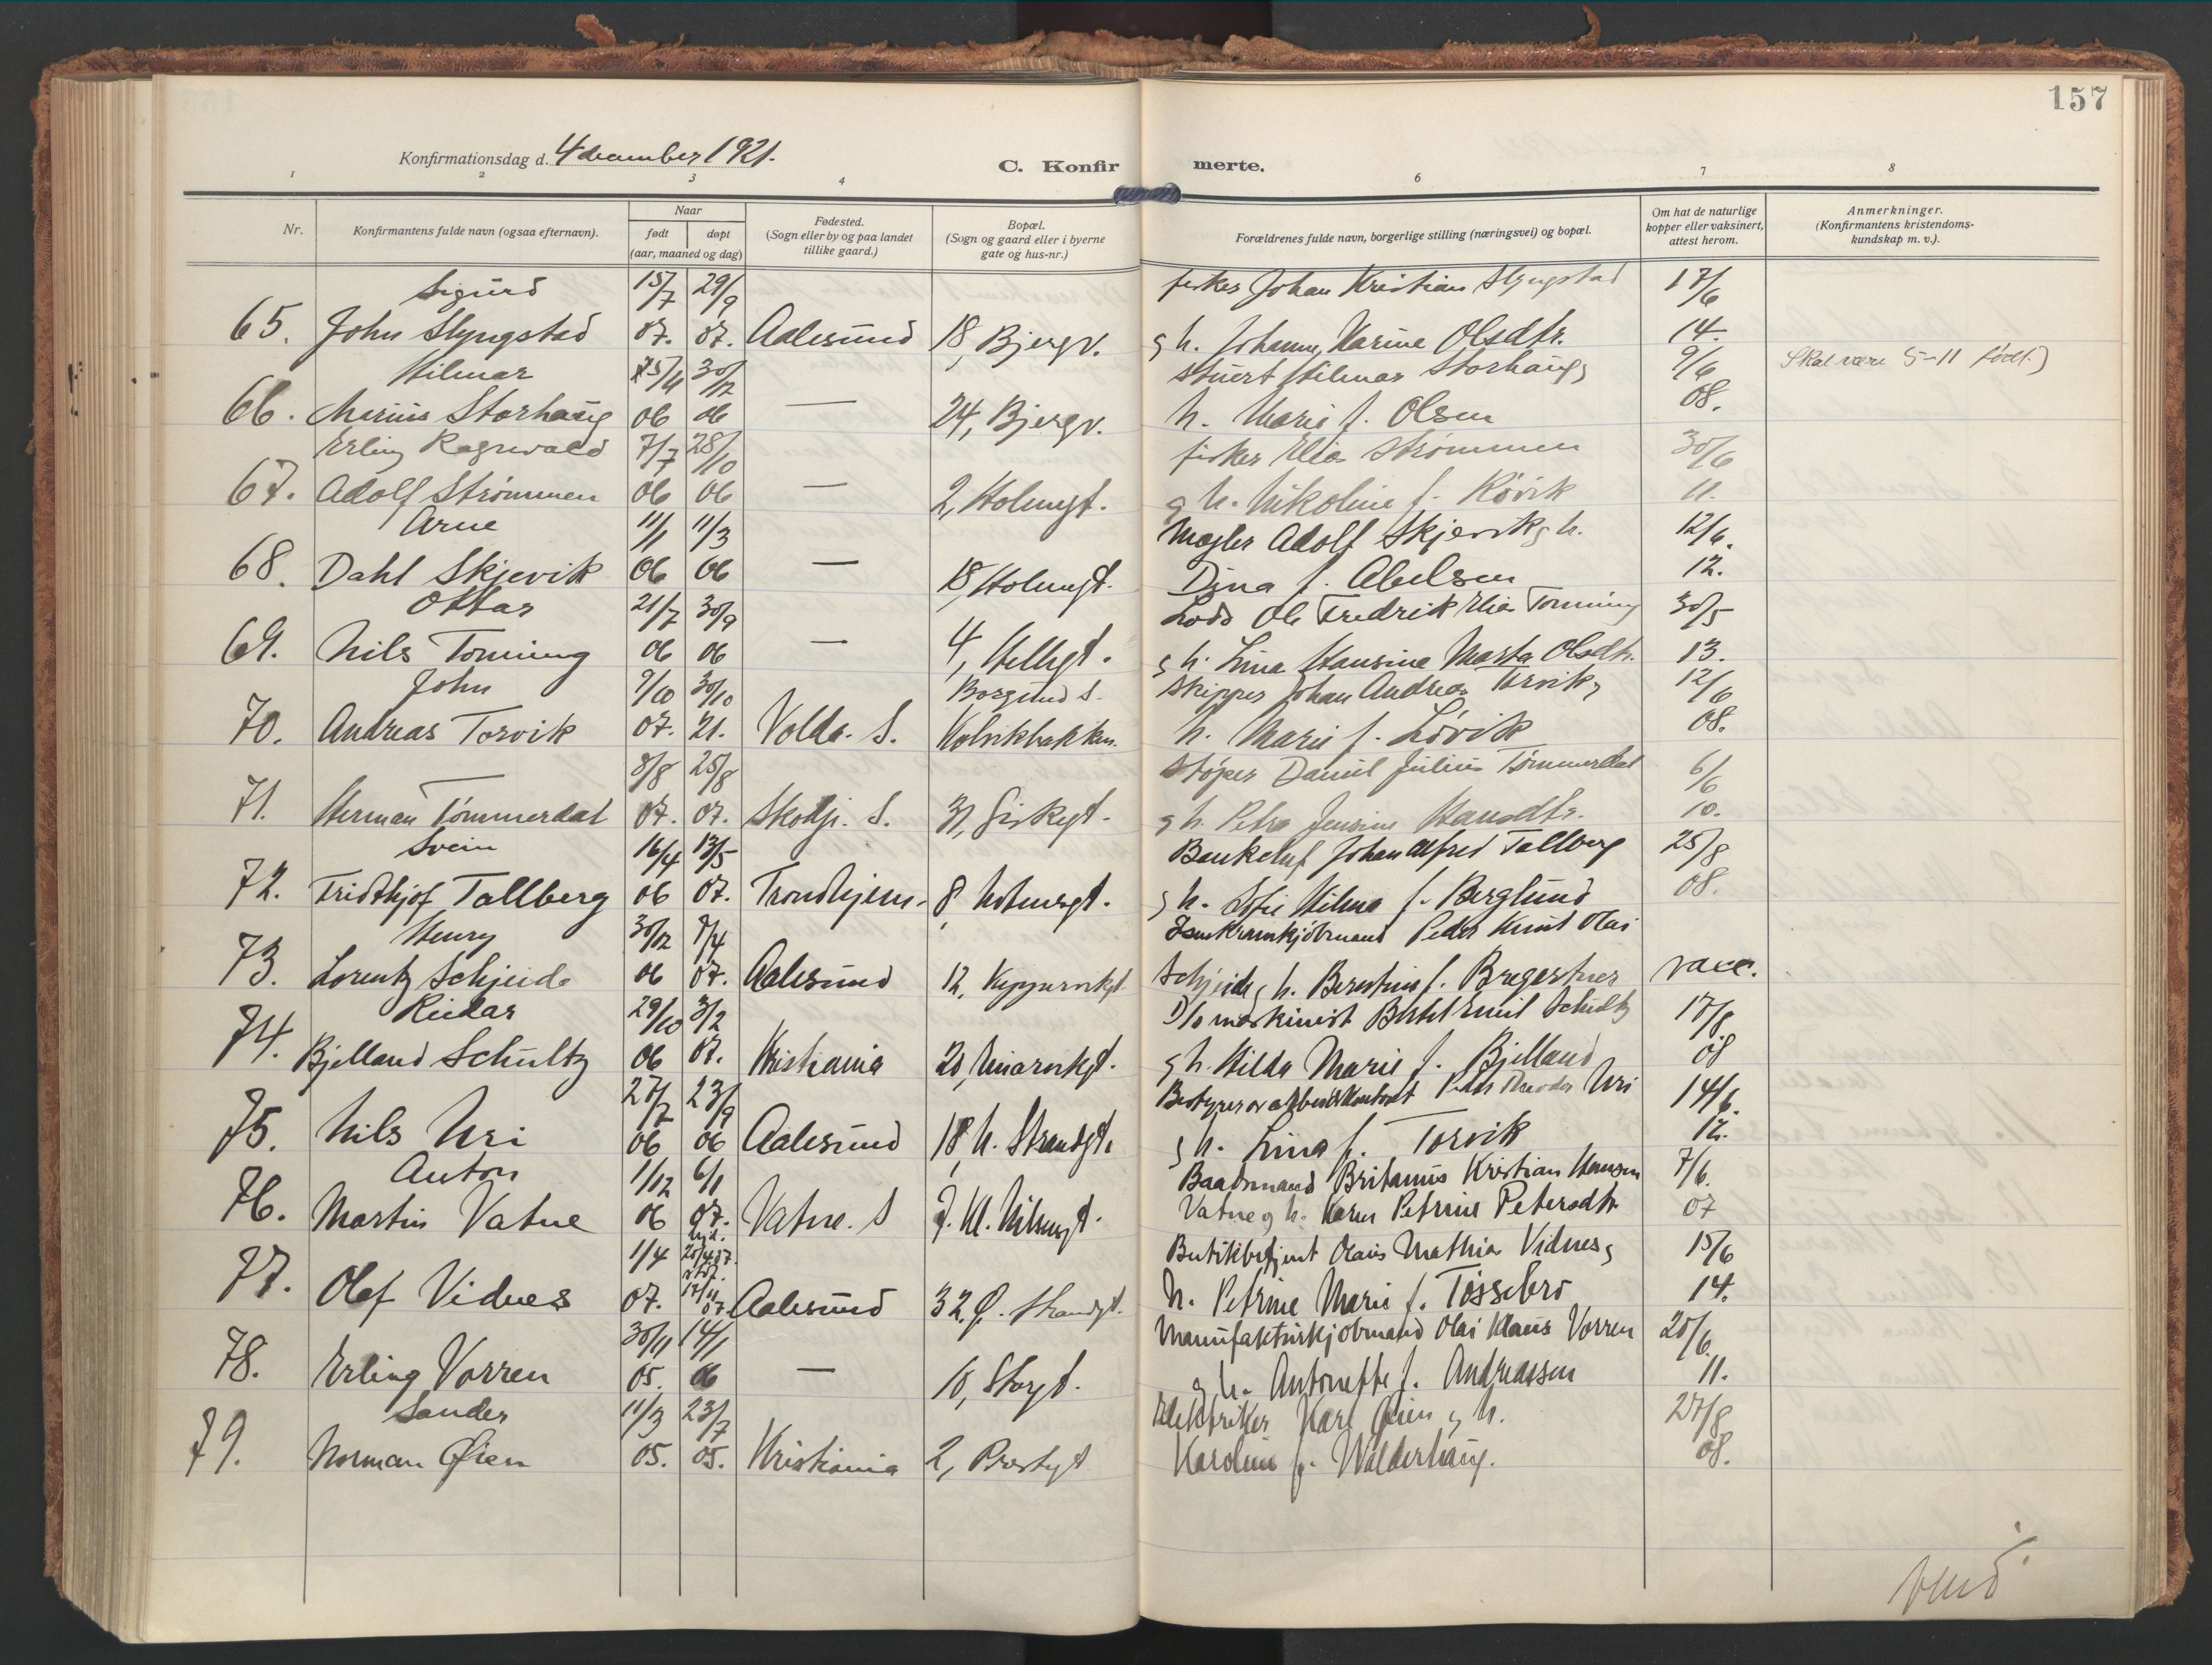 157
Konfirmationsdag d. 4 december 1921.
C. Konfirmerte.
1 2 3 4 6 7 8
Nr.
Konfirmantens fulde navn (ogsaa efternavn).
Naar
født døpt
(aar, maaned og dag)
Fødested.
(Sogn eller by og paa landet
tillike gaard.)
Bopæl.
(Sogn og gaard eller i byerne
gate og hus-nr.)
Forældrenes fulde navn, borgerlige stilling (næringsvei) og bopæl.
Om hat de naturlige
kopper eller vaksinert,
attest herom.
Anmerkninger.
(Konfirmantens kristendoms-
kundskap m. v.).
Sigurd 15/7 29/9 fisker Johan Kristian Slyngstad 17/6
65. John Slyngstad 07. 07. Aalesund 18, Bjergv. g h. Johanne Karine Olsdtr. 14.
Hilmar 15/4 30/12 Stuert Hilmar Storhaug g 9/6 Skal være 5-11 født.)
66. Marius Storhaug 06 06 — 24, Bjergv. h. Marie f. Olsen 08.
Erling Ragnvald 7/7 28/10 fisker Elias Strømmen 30/6
67. Adolf Strømmen 06 06 — 2, Holmgt. g h. Nikoline f. Røvik 11.
Arne 11/1 11/3 Mægler Adolf Skjevik g h. 12/6.
68. Dahl Skjevik 06 06 — 18, Holmgt. Dina f. Abelsen 12.
Ottar 21/7 30/9 Lods Ole Fredrik Elias Tonning 30/5
69. Nils Tonning 06 06 — 4, Hellegt. g h. Lina Hansine Marta Olsdtr. 13.
John 9/10 30/10 Borgund S. Skipper Johan Andreas Torvik g 12/6
70. Andreas Torvik 07. 21. Volda. S. Kolvikbakken. h. Marie f. Løvik 08.
8/8 25/8 Støper Daniel Julius Tømmerdal 6/6
71. Herman Tømmerdal 07. 07. Skodje. S. 31, Giskegt. g h. Petra Jensine Hansdtr. 10.
Svein 16/4 13/5 Bankchef Johan Alfred Tallberg 25/8
72. Fridthjof Tallberg 06 07. Trondhjem. 8, Notenesgt. g h. Sofie Hilma f. Berglund 08.
Henry 30/12 7/4 Isenkramkjøbmand Peder Knut Olai
73. Lorentz Schjeide 06 07. Aalesund 12, Kippervikgt. Schjeide g h. Berentine f. Bregestnes vacc.
Reidar 29/10 3/2 D/s maskinist Bertel Emil Schultz 17/8
74. Bjelland Schultz 06 07. Kristiania 20, g h. Hilda Marie f. Bjelland 08
27/7 23/9 Bestyrer av arbeidskontoret Peter Theodor Uri 14/6.
75. Nils Uri 06 06 Aalesund 18, N. Strandgt. g h. Lina f. Torvik 12.
Anton 1/12 6/1 Baadsmand Britanus Kristian Hansen 7/6.
76. Martin Vatne 06 07. Vatne. S 7. Kl. Nilsensgt. Vatne g h. Karen Petrine Petersdtr. 07
1/4 20/4 07. Butikbetjent Olaus Mathias Vidnes g 15/6
77. Olaf Vidnes 07. 17/11 07. Aalesund 32. Ø. Strandgt. h. Petrine Marie f. Tøssebro 14.
30/11 14/1 Manufakturkjøbmand Olai Klaus Vorren 20/6.
78. Erling Vorren 05. 06 — 10, Storgt. g h. Antonette f. Andreassen 11.
Sander 11/3 23/7 Elektriker Karl Øien g h. 27/8
79. Norman Øien 05. 05. Kristiania 2, Prestegt Karoline f. Walderhaug. 08.
Vend